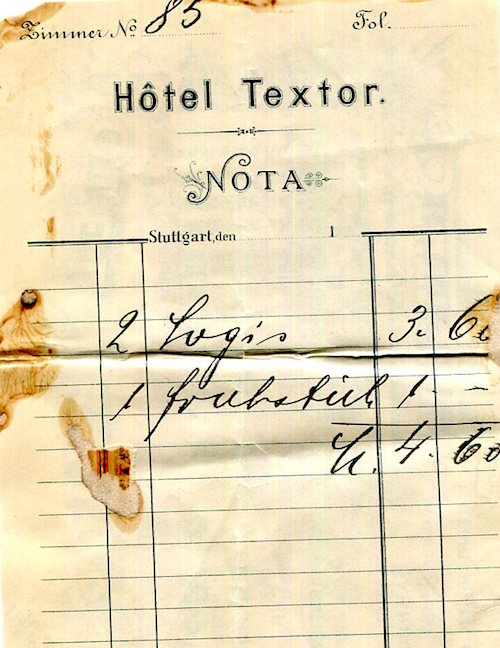 Zimmer No 85 Fol.
Hôtel Textor.
NOTA
Stuttgart, den 1
2 Logis 3. 60
1 Frubstück 1 - -
M. 4. 60